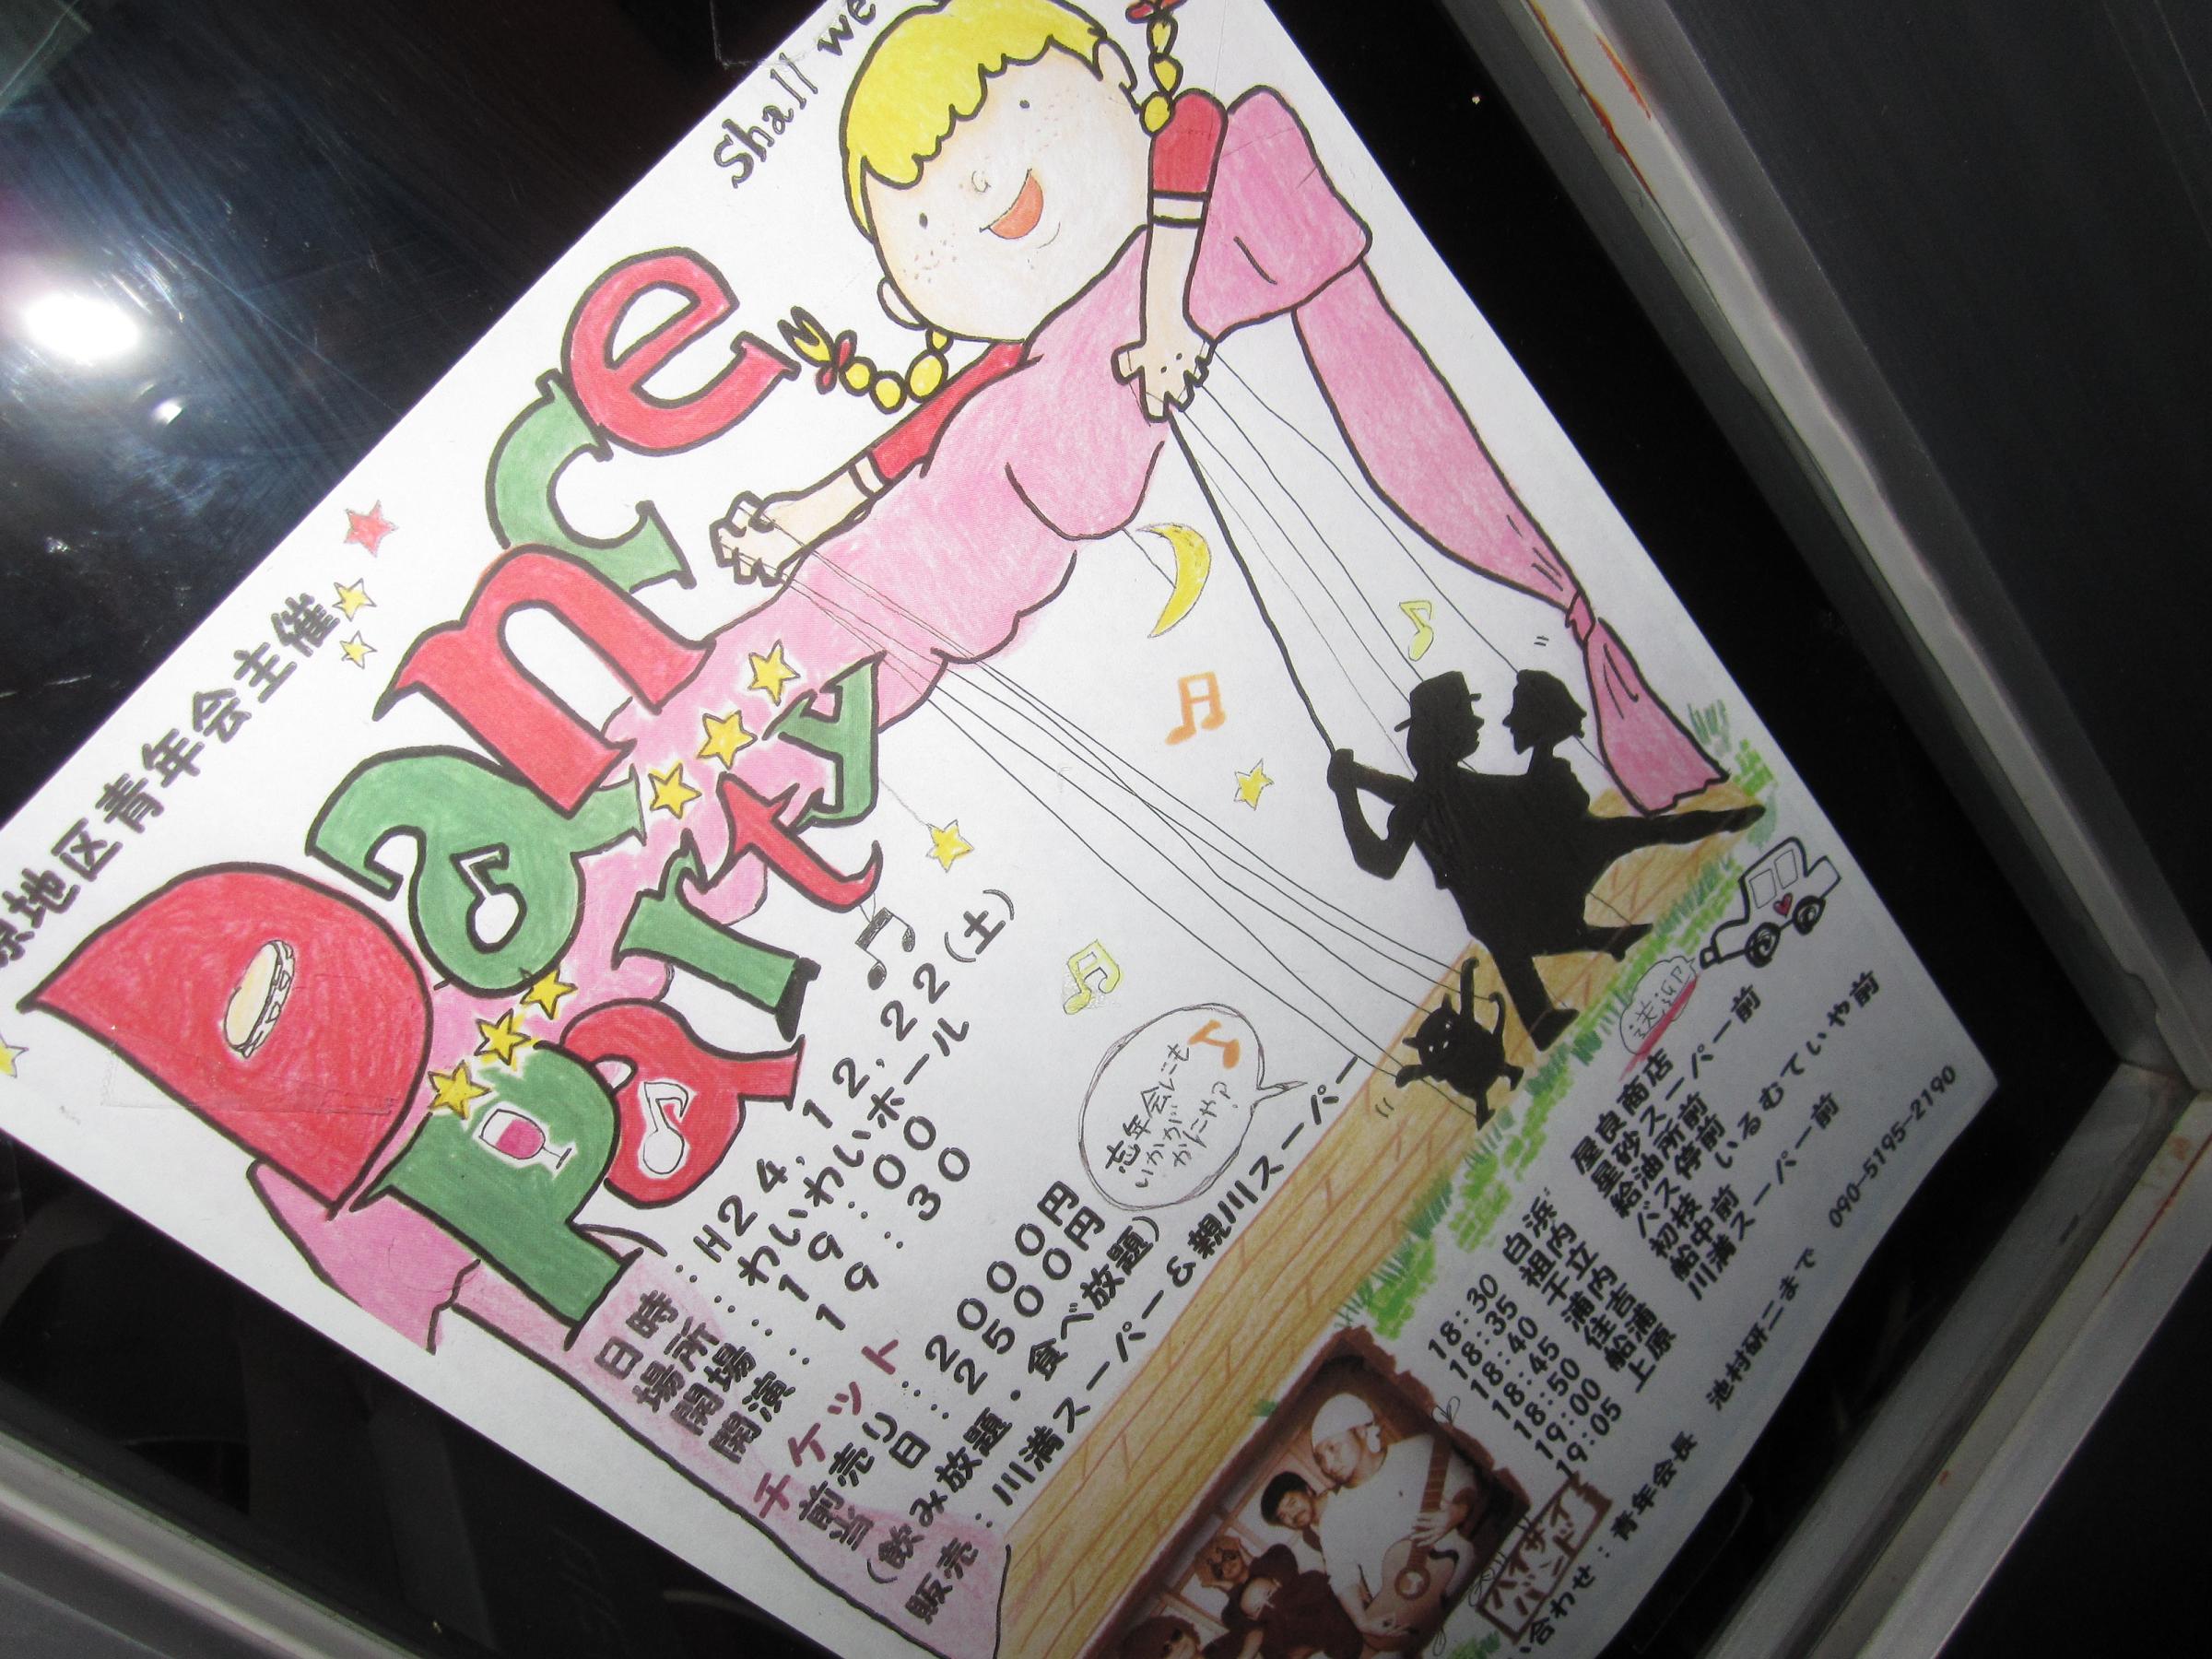 Shall we
原地区青年会主催
Dance
Party
日時：H24.12.22(土)
場所：わいわいホール
開場：19:00
開演：19:30
チケット
前売り：2000円
当日：2500円
(飲み放題・食べ放題)
販売：川満スーパー&親川スーパー
忘年会にも
いかが
かにゃ?
送迎
18:30 白浜 屋良商店
18:35 祖内 星砂スーパー前
18:40 干立 給油所前
18:45 浦内 バス停前
18:50 住吉 初枝 いるむてぃや前
19:00 船浦 船中前
19:05 上原 川満スーパー前
ハイサイ
バンド
い合わせ：青年会長 池村研二まで 090-5195-2190